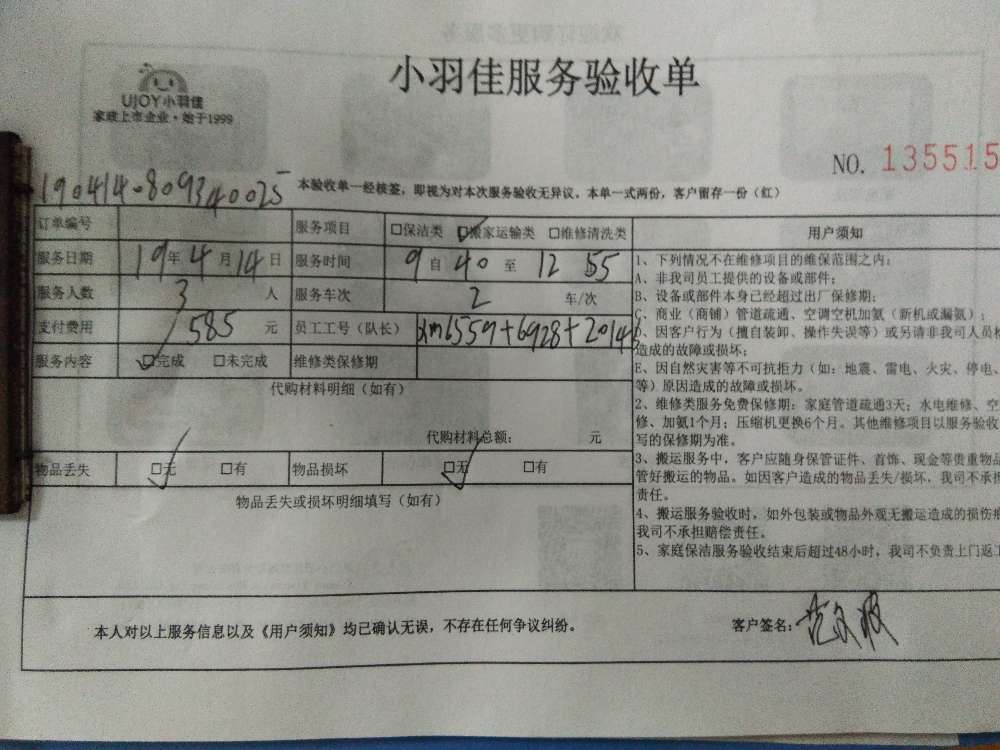 小羽佳服务验收单
UJOY小羽佳
家政上市企业·始于1999
NO. 135515
190414-809340025
本验收单一经核签，即视为对本次服务验收无异议。本单一式两份，客户留存一份（红）
订单编号 服务项目 □保洁类 □搬家运输类 □维修清洗类
服务日期 19年4月14日 服务时间 9自40至12 55
服务人数 3人 服务车次 2车/次
支付费用 585元 员工工号（队长） xm6559+6928+2014
服务内容 □完成 □未完成 维修类保修期
代购材料明细（如有）
代购材料总额： 元
物品丢失 □无 □有 物品损坏 □无 □有
物品丢失或损坏明细填写（如有）
用户须知
1、下列情况不在维修项目的维保范围之内：
A、非我司员工提供的设备或部件；
B、设备或部件本身已经超过出厂保修期；
C、商业（商铺）管道疏通、空调空机加氨（新机或漏氨）；
D、因客户行为（擅自装卸、操作失误等）或另请非我司人员
造成的故障或损坏；
E、因自然灾害等不可抗拒力（如：地震、雷电、火灾、停电、
等）原因造成的故障或损坏。
2、维修类服务免费保修期：家庭管道疏通3天；水电维修、空
修、加氨1个月；压缩机更换6个月。其他维修项目以服务验收
写的保修期为准。
3、搬运服务中，客户应随身保管证件、首饰、现金等贵重物品
管好搬运的物品。如因客户造成的物品丢失/损坏，我司不承担
责任。
4、搬运服务验收时，如外包装或物品外观无搬运造成的损伤痕
我司不承担赔偿责任。
5、家庭保洁服务验收结束后超过48小时，我司不负责上门返工
本人对以上服务信息以及《用户须知》均已确认无误，不存在任何争议纠纷。
客户签名：